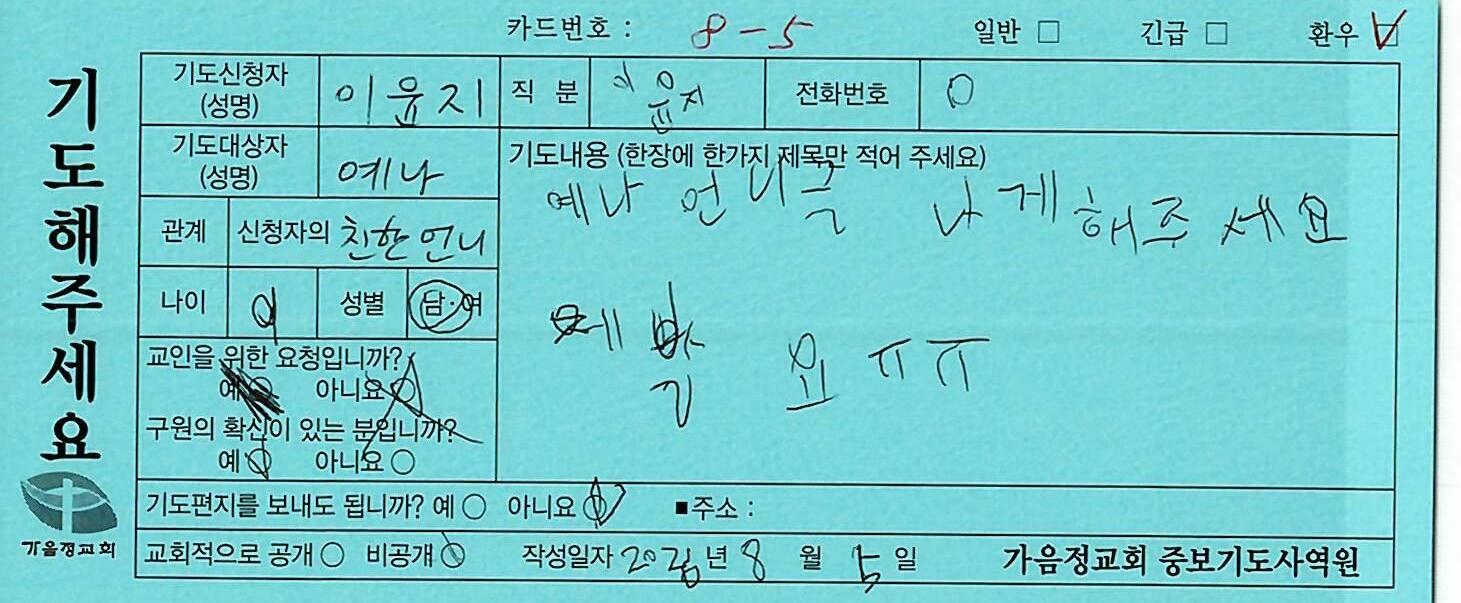 카드번호 : 8-5 일반 □ 긴급 □ 환우 ☑
기도해주세요
기도신청자 (성명) 이윤지 직 분 이윤지 전화번호 0
기도대상자 (성명) 예나
기도내용 (한장에 한가지 제목만 적어 주세요)
예나 언니를 낫게 해주세요
제발 요 ㅠㅠ
관계 신청자의 친한언니
나이 성별 남·여
교인을 위한 요청입니까?
예 ○ 아니요 ○
구원의 확신이 있는 분입니까?
예 ○ 아니요 ○
기도편지를 보내도 됩니까? 예 ○ 아니요 ○ ■주소 :
교회적으로 공개 ○ 비공개 ○ 작성일자 년 8 월 5 일 가음정교회 중보기도사역원
가음정교회